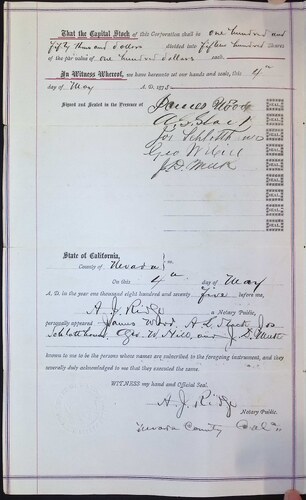 That the Capital Stock of this Corporation shall be one hundred and
fifty thousand dollars divided into fifteen hundred Shares
of the par value of one hundred dollars each.
In Witness Whereof, we have hereunto set our hands and seals, this 4th
day of May A. D. 1875
Signed and Sealed in the Presence of
James Wood
A. L. Stack
Jos Schlotthouse
Geo W Hill
J. D. Meek
State of California,
County of Nevada ss.
On this 4th day of May
A. D. in the year one thousand eight hundred and seventy five before me,
A. J. Ridge a Notary Public,
personally appeared James Wood, A L Stack, Jos
Schlotthouse, Geo. W. Hill, and J D Meek
known to me to be the persons whose names are subscribed to the foregoing instrument, and they
severally duly acknowledged to me that they executed the same.
WITNESS my hand and Official Seal.
A. J. Ridge
Notary Public.
Nevada County Cal